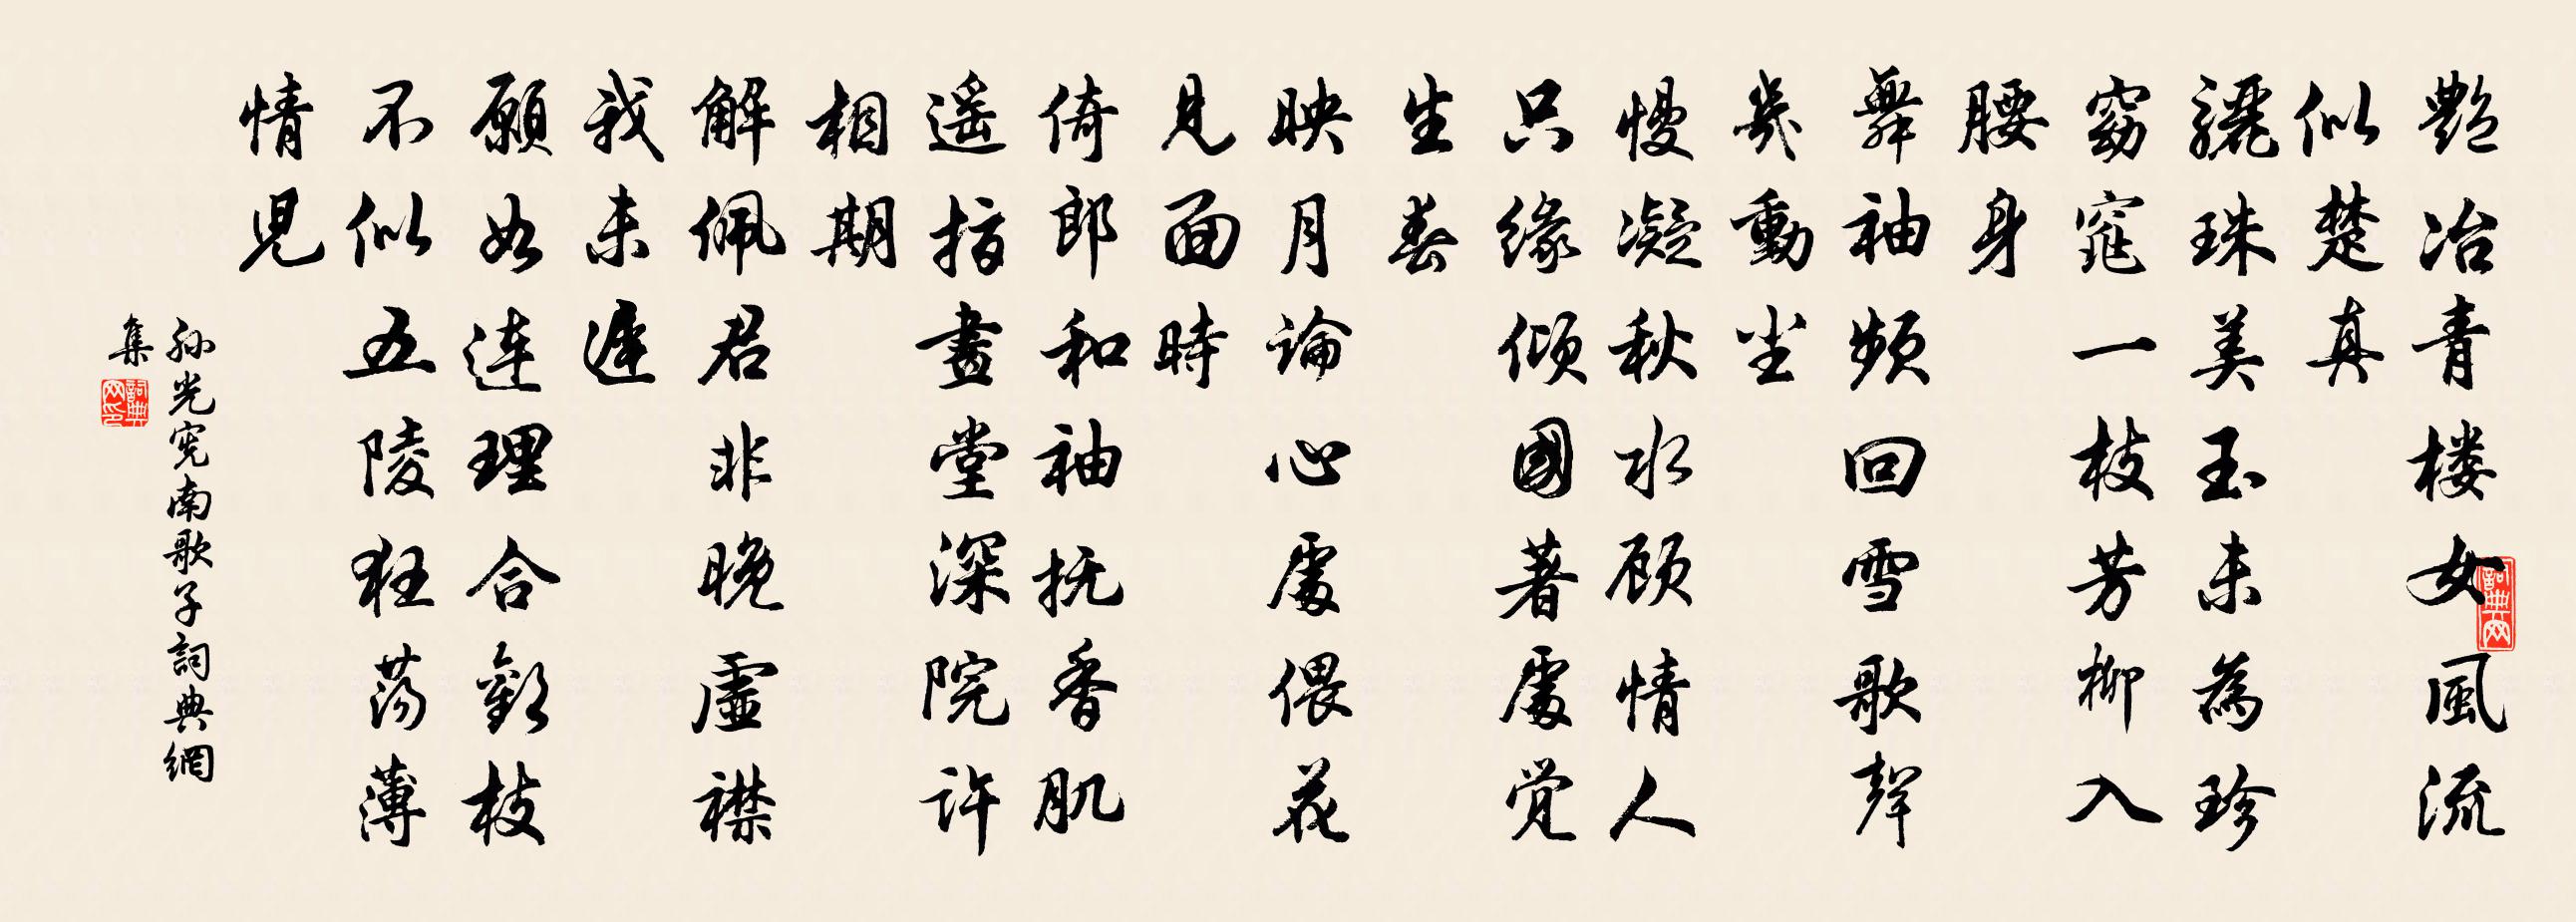 艷冶青楼女風流
似楚真
驪珠美玉未為珍
窈窕一枝芳柳入
腰身
舞袖頻回雪歌聲
幾動尘
慢凝秋水顾情人
只緣倾國著處觉
生春
映月論心處偎花
見面時
倚郎和袖抚香肌
遥指畫堂深院许
相期
解佩君非晚虚襟
我未遲
願如连理合歡枝
不似五陵狂荡薄
情児
孙光宪南歌子詞典網
集
詞典网
詞典网印